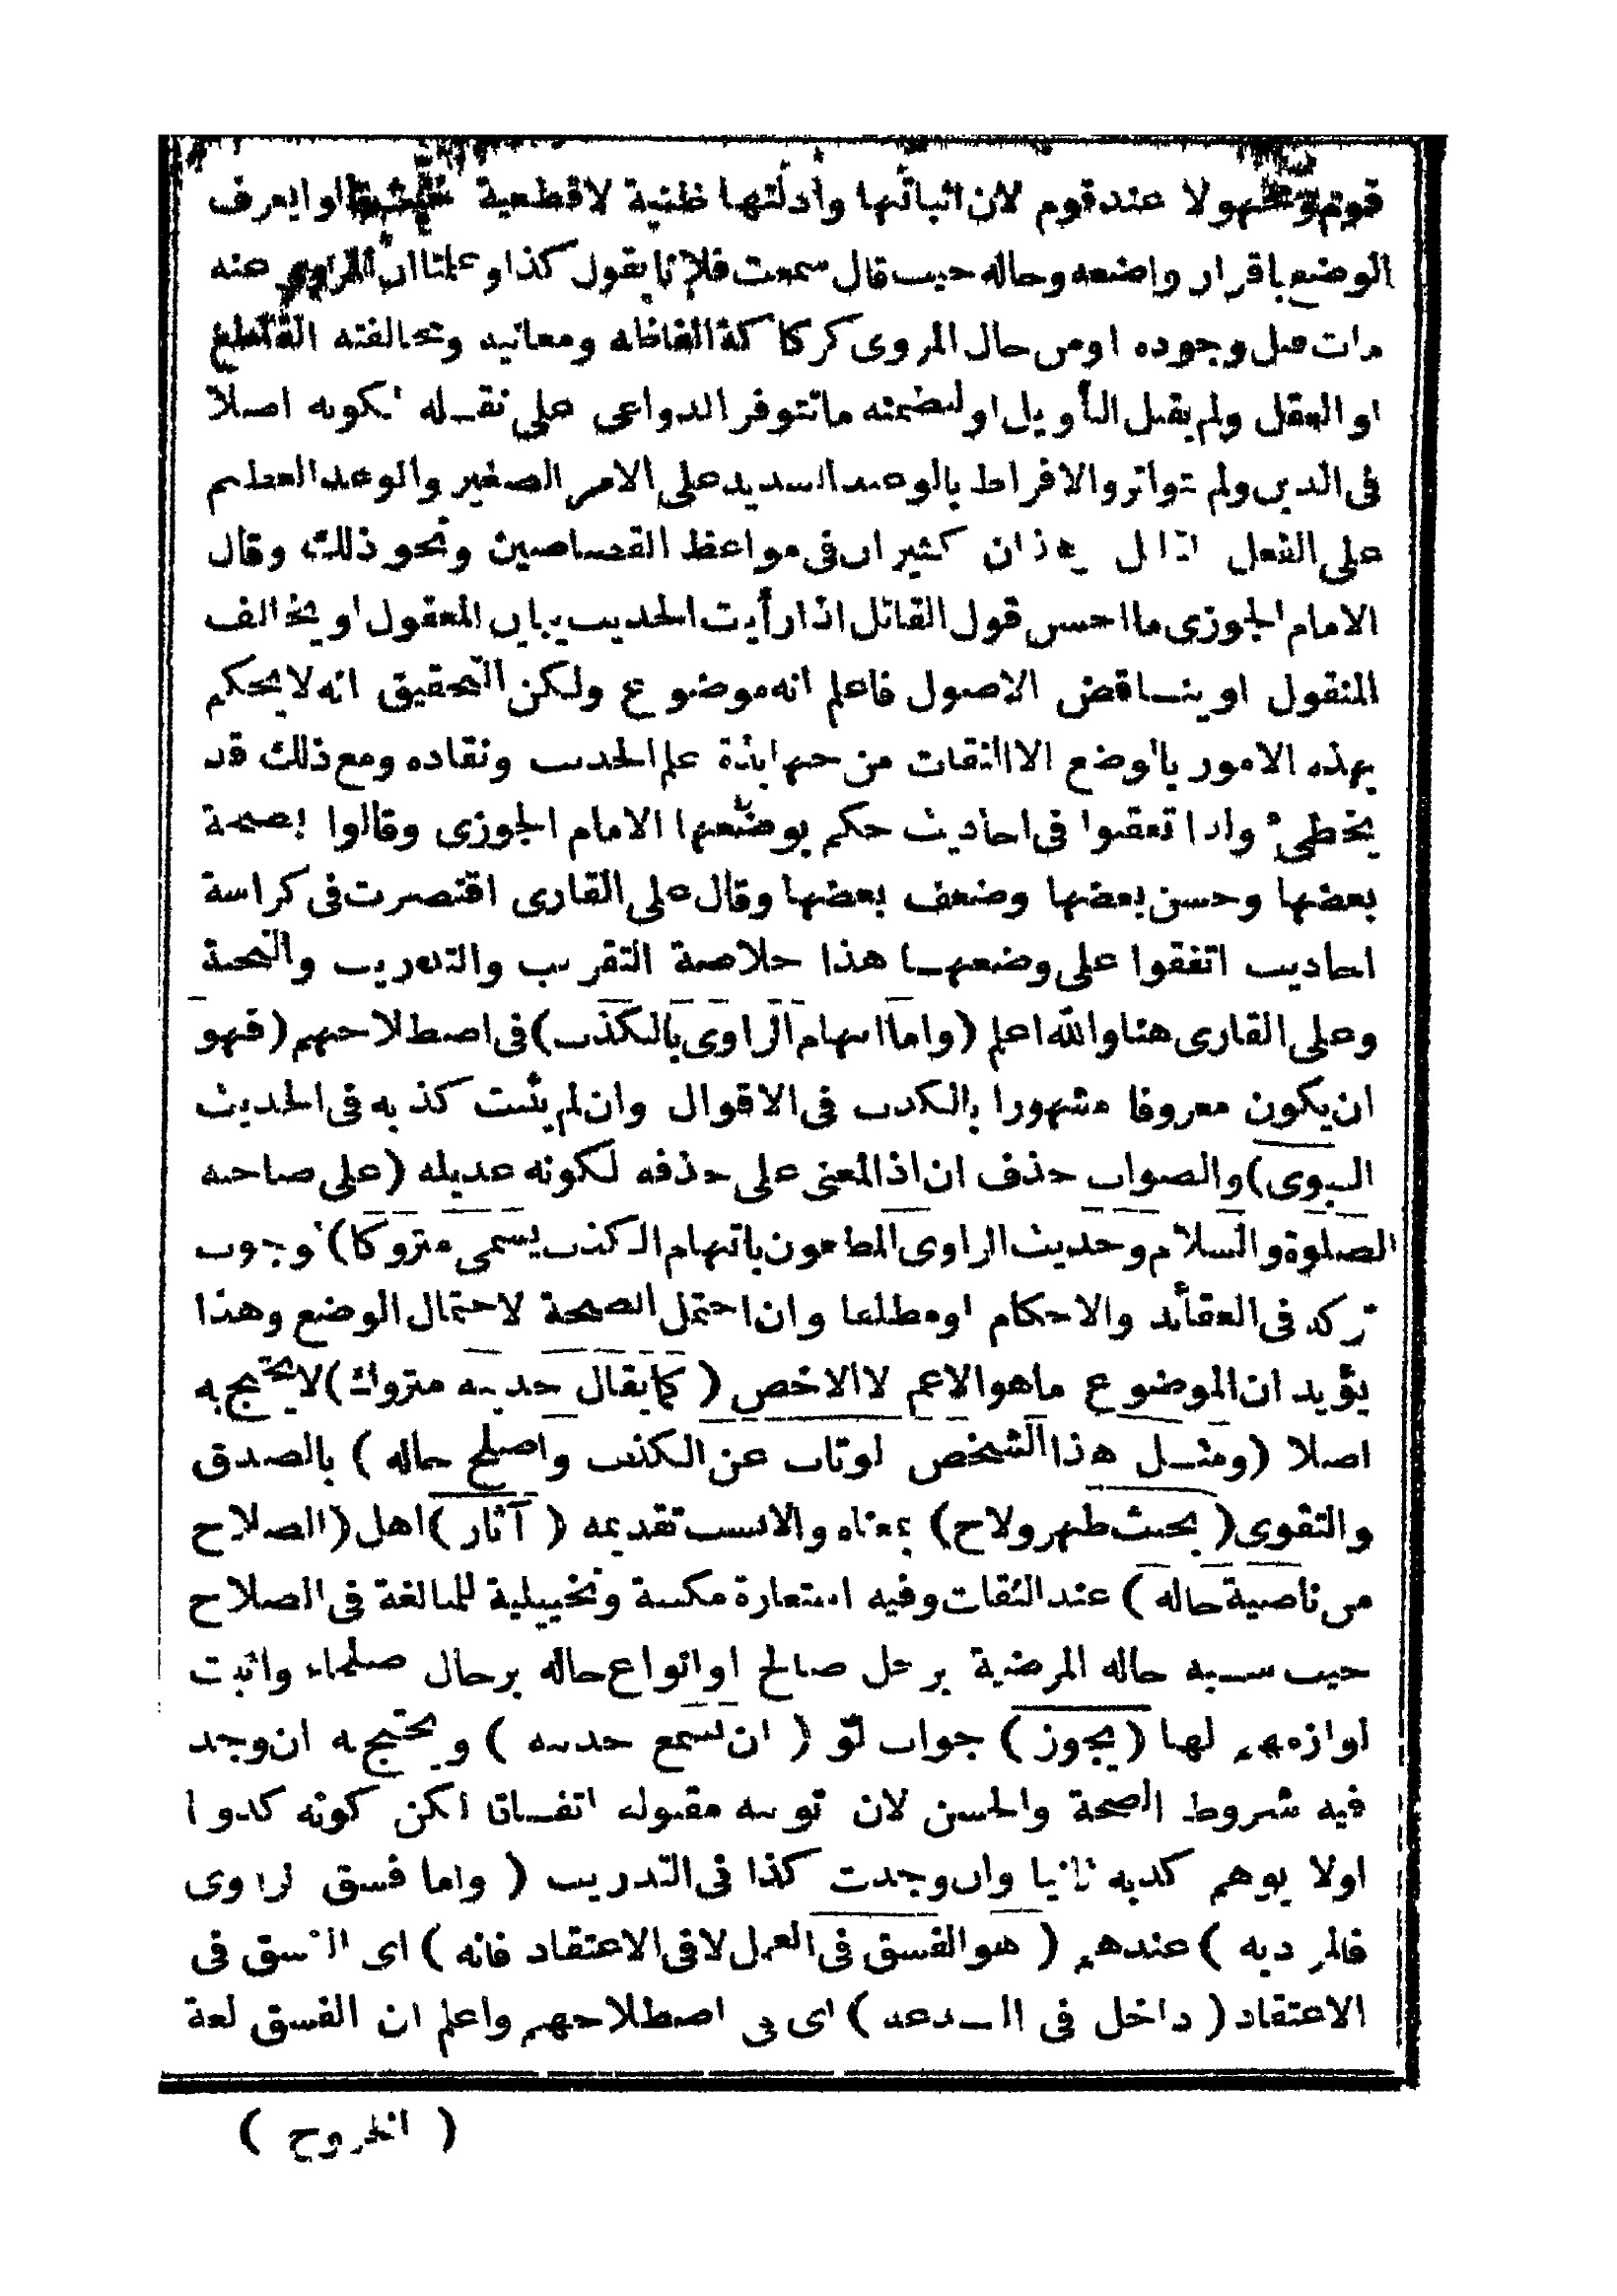 لا عند قوم لان اثباتها وأدلتها ظنية لا قطعية او ايعرف
الوضع باقرار واضعه وحاله حيث قال سمعت فلانا يقول كذا وعلمنا ان المروى عنه
مات قبل وجوده او من حال المروى كركاكة الفاظه ومعانيه ومخالفته القاطع
او العقل ولم يقبل التأويل او لتضمنه ماتتوفر الدواعى على نقله لكونه اصلا
فى الدين ولم يتواتر والافراط بالوعيد الشديد على الامر الصغير والوعد العظيم
على الفعل هذان كثيران فى مواعظ القصاصين ونحو ذلك وقال
الامام الجوزى ما احسن قول القائل اذا رأيت الحديث يباين المعقول او يخالف
المنقول او يناقض الاصول فاعلم انه موضوع ولكن التحقيق انه لا يحكم
بهذه الامور بالوضع الا الثقات من جهابذة علم الحديث ونقاده ومع ذلك قد
يخطئ واذا تعقبوا فى احاديث حكم بوضعها الامام الجوزى وقالوا بصحة
بعضها وحسن بعضها وضعف بعضها وقال على القارى اقتصرت فى كراسة
احاديث اتفقوا على وضعها هذا خلاصة التقريب والتدريب والنخبة
وعلى القارى هنا والله اعلم (واما اتهام الراوى بالكذب) فى اصطلاحهم (فهو
ان يكون معروفا مشهورا بالكذب فى الاقوال وان لم يثبت كذبه فى الحديث
النبوى) والصواب حذف ان اذ المعنى على حذفه لكونه عديله (على صاحبه
الصلوة والسلام وحديث الراوى المطعون باتهام الكذب يسمى متروكا) لوجوب
تركه فى العقائد والاحكام او مطلقا وان احتمل الصحة لاحتمال الوضع وهذا
يؤيد ان الموضوع ماهو الاعم لا الاخص (كما يقال حديثه متروك) لا يحتج به
اصلا (ومثل هذا الشخص لو تاب عن الكذب واصلح حاله) بالصدق
والتقوى (بحيث ظهر ولاح) بمعناه والانسب تقديمه (آثار) اهل (الصلاح
من ناصية حاله) عند الثقات وفيه استعارة مكنية وتخييلية للمبالغة فى الصلاح
حيث شبه حاله المرضية برجل صالح او انواع حاله برجال صلحاء واثبت
لوازمهم لها (يجوز) جواب لو (ان يسمع حديثه) ويحتج به ان وجد
فيه شروط الصحة والحسن لان توبته مقبولة اتفاقا لكن كونه كذوبا
اولا يوهم كذبه ثانيا وان وجدت كذا فى التدريب (واما فسق الراوى
فالمراد به) عندهم (هو الفسق فى العمل لا فى الاعتقاد فانه) اى الفسق فى
الاعتقاد (داخل فى البدعة) اى فى اصطلاحهم واعلم ان الفسق لغة
(الخروج)